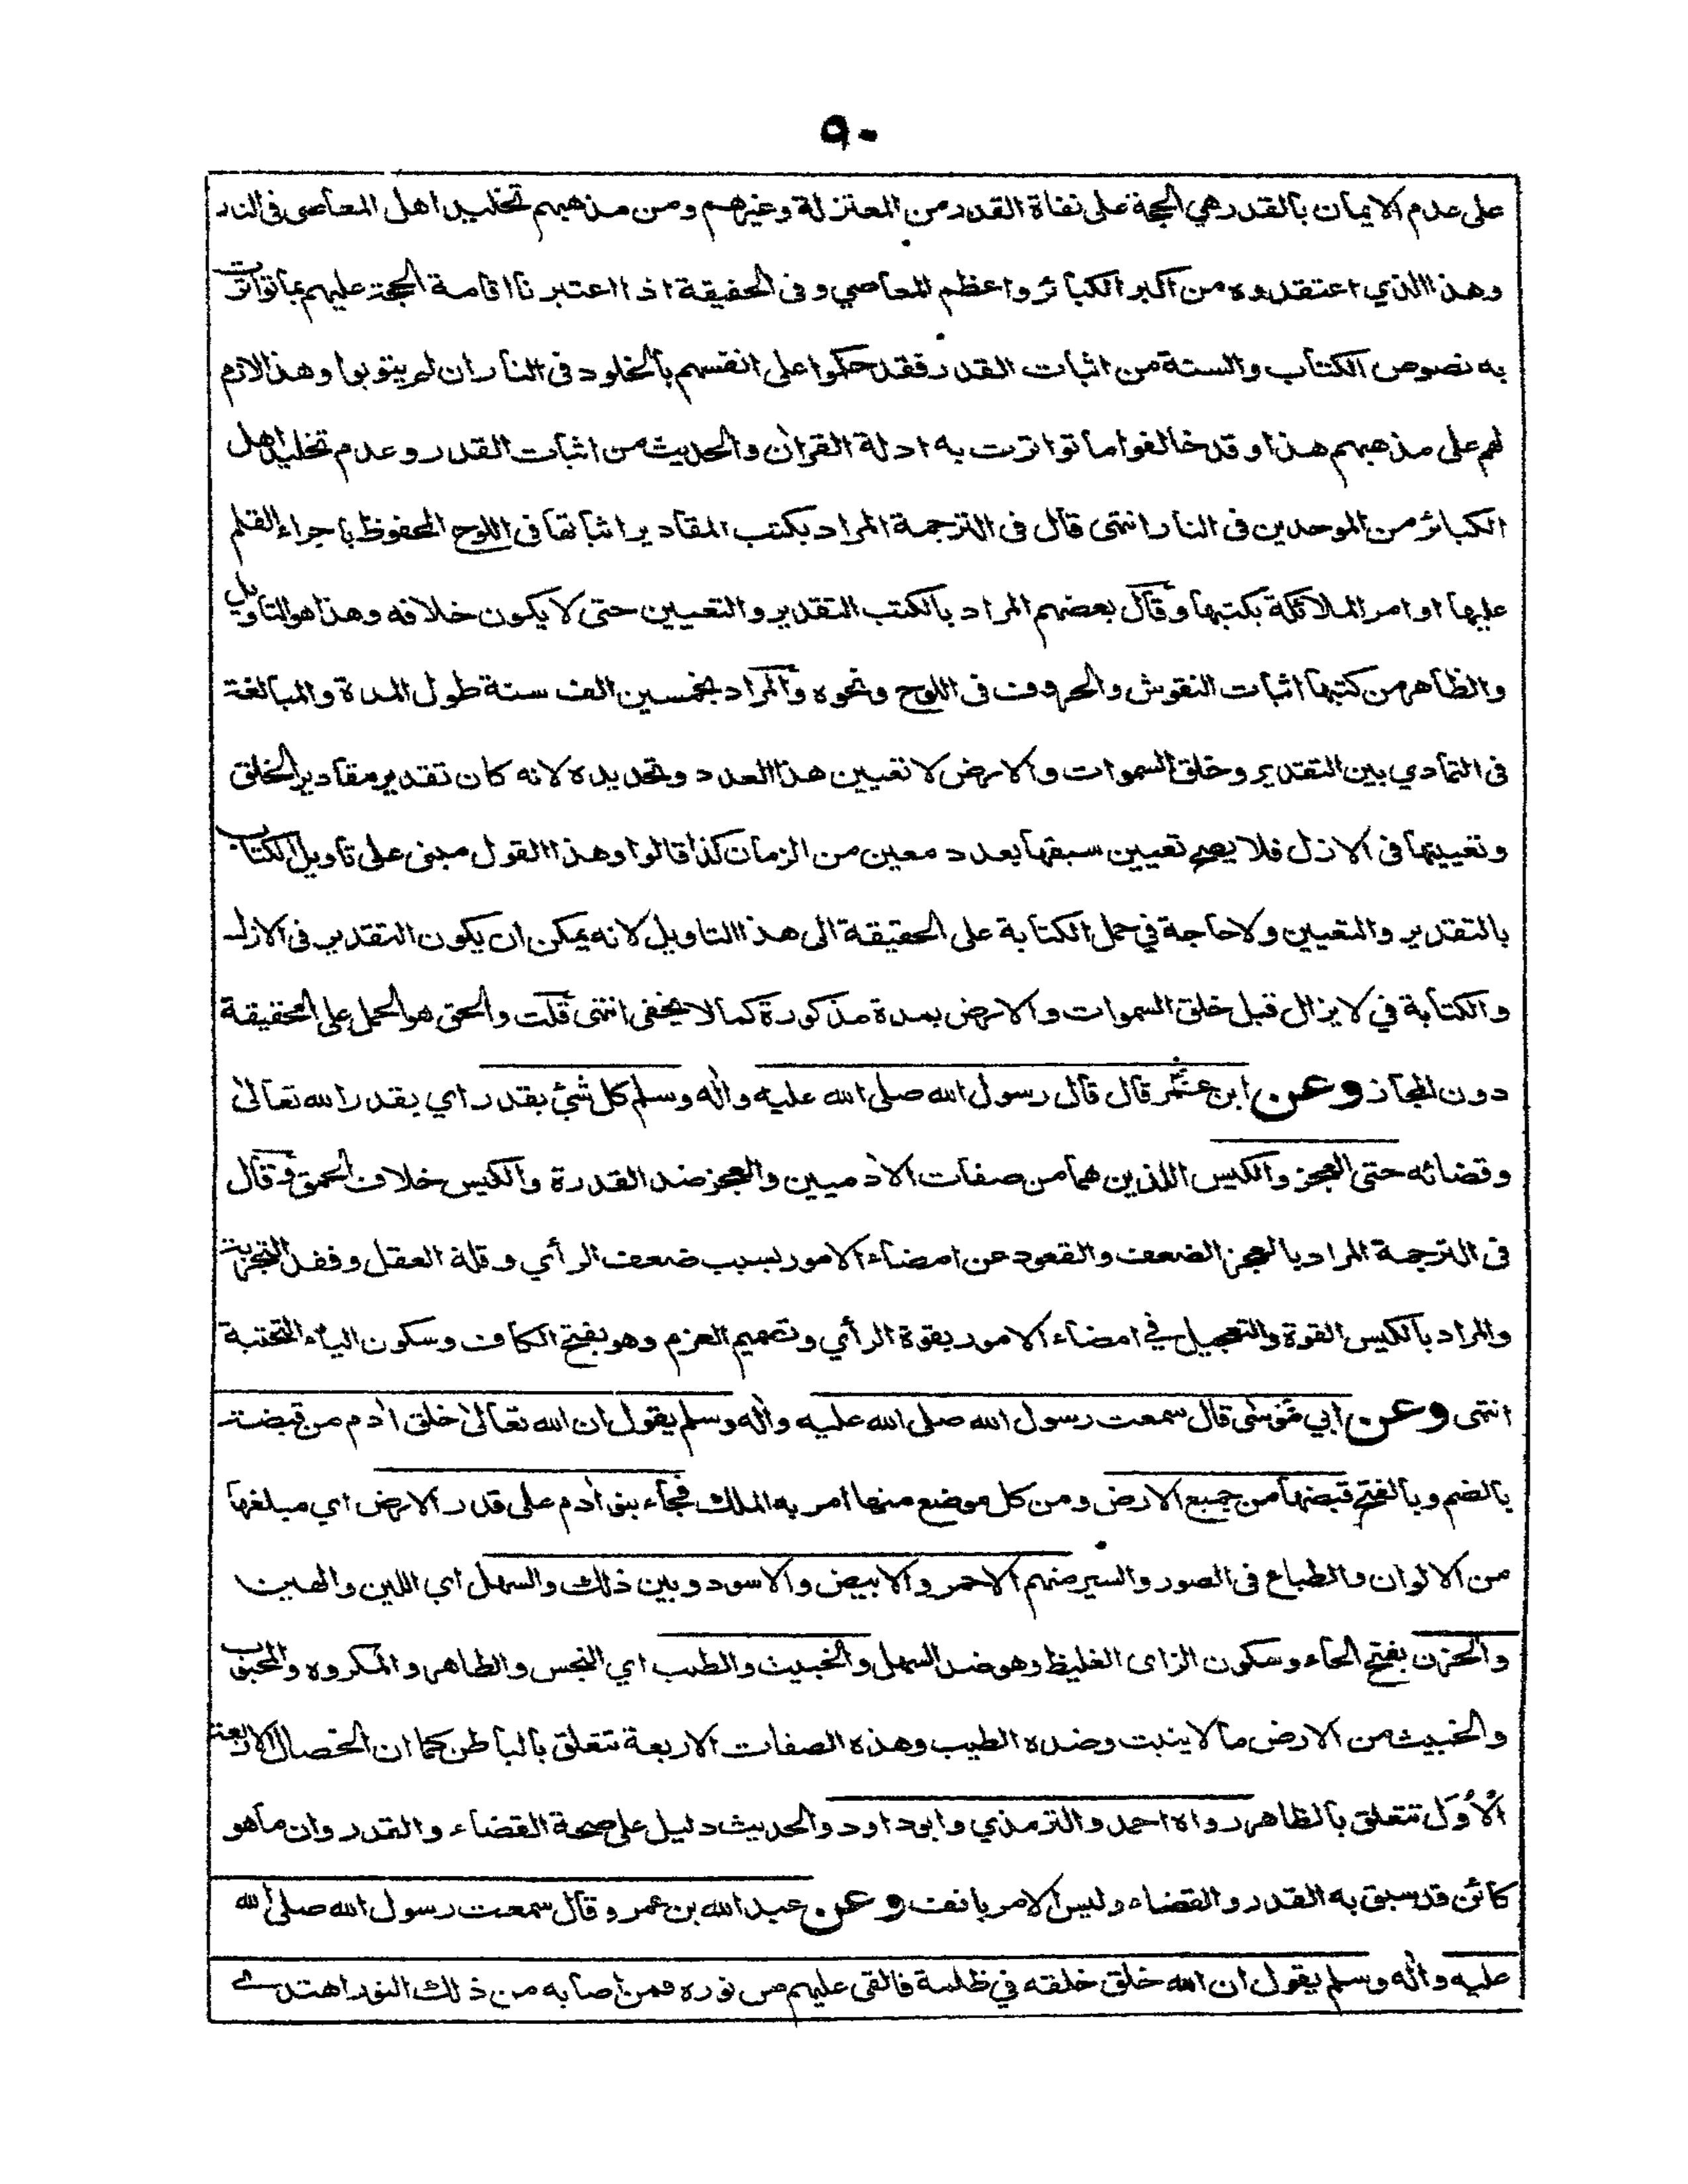 ٩٠
على عدم الايمان بالقدر هي الحجة على نفاة القدر من المعتزلة وغيرهم ومن مذهبهم تخليد اهل المعاصى فى النار
وهذا الذي اعتقدوه من اكبر الكبائر واعظم المعاصي وفى الحقيقة اذا اعتبرنا اقامة الحجة عليهم بما تواترت
به نصوص الكتاب والسنة من اثبات القدر فقد حكموا على انفسهم بالخلود فى النار ان لم يتوبوا وهذا لازم
لهم على مذهبهم هذا وقد خالفوا ما تواترت به ادلة القرآن والحديث من اثبات القدر وعدم تخليد اهل
الكبائر من الموحدين فى النار انتهى قال فى الترجمة المراد بكتب المقادير اثباتها فى اللوح المحفوظ باجراء القلم
عليها او امر الملائكة بكتبها وقال بعضهم المراد بالكتب التقدير والتعيين حتى لا يكون خلافه وهذا هو التاويل
والظاهر من كتبها اثبات النقوش والحروف فى اللوح ونحوه والمراد بخمسين الف سنة طول المدة والمبالغة
فى التمادي بين التقدير وخلق السموات والارض لا تعيين هذا العدد وتحديده لانه كان تقدير مقادير الخلق
وتعيينها فى الازل فلا يصح تعيين سبقها بعدد معين من الزمان كذا قالوا وهذا القول مبنى على تاويل الكتاب
بالتقدير والتعيين ولا حاجة في حمل الكتابة على الحقيقة الى هذا التاويل لانه يمكن ان يكون التقدير فى الازل
والكتابة في لا يزال قبل خلق السموات والارض بمدة مذكورة كما لا يخفى انتهى قلت والحق هو الحمل على الحقيقة
دون المجاز وعن ابن عمر قال قال رسول الله صلى الله عليه وآله وسلم كل شئ بقدر اي بقدر الله تعالى
وقضائه حتى العجز والكيس اللذين هما من صفات الآدميين والعجز ضد القدرة والكيس خلاف الحمق وقال
فى الترجمة المراد بالعجز الضعف والقعود عن امضاء الامور بسبب ضعف الرأي وقلة العقل وفقد التجربة
والمراد بالكيس القوة والتعجيل في امضاء الامور بقوة الرأي وتصميم العزم وهو بفتح الكاف وسكون الياء التحتية
انتهى وعن ابي موسى قال سمعت رسول الله صلى الله عليه وآله وسلم يقول ان الله تعالى خلق آدم من قبضة
بالضم وبالفتح قبضها من جميع الارض ومن كل موضع منها امر به الملك فجاء بنو آدم على قدر الارض اي مبلغها
من الالوان والطباع فى الصور والسير منهم الاحمر والابيض والاسود وبين ذلك والسهل اي اللين والهين
والحزن بفتح الحاء وسكون الزاى الغليظ وهو ضد السهل والخبيث والطيب اي النجس والطاهر والمكروه والمحبوب
والخبيث من الارض ما لا ينبت وضده الطيب وهذه الصفات الاربعة تتعلق بالباطن كما ان الخصال الاربعة
الاُوَل تتعلق بالظاهر رواه احمد والترمذي وابوداود والحديث دليل على صحة القضاء والقدر وان ما هو
كائن قد سبق به القدر والقضاء وليس الامر بانف وعن عبدالله بن عمرو قال سمعت رسول الله صلى الله
عليه وآله وسلم يقول ان الله خلق خلقه في ظلمة فالقى عليهم من نوره فمن اصابه من ذلك النور اهتدے